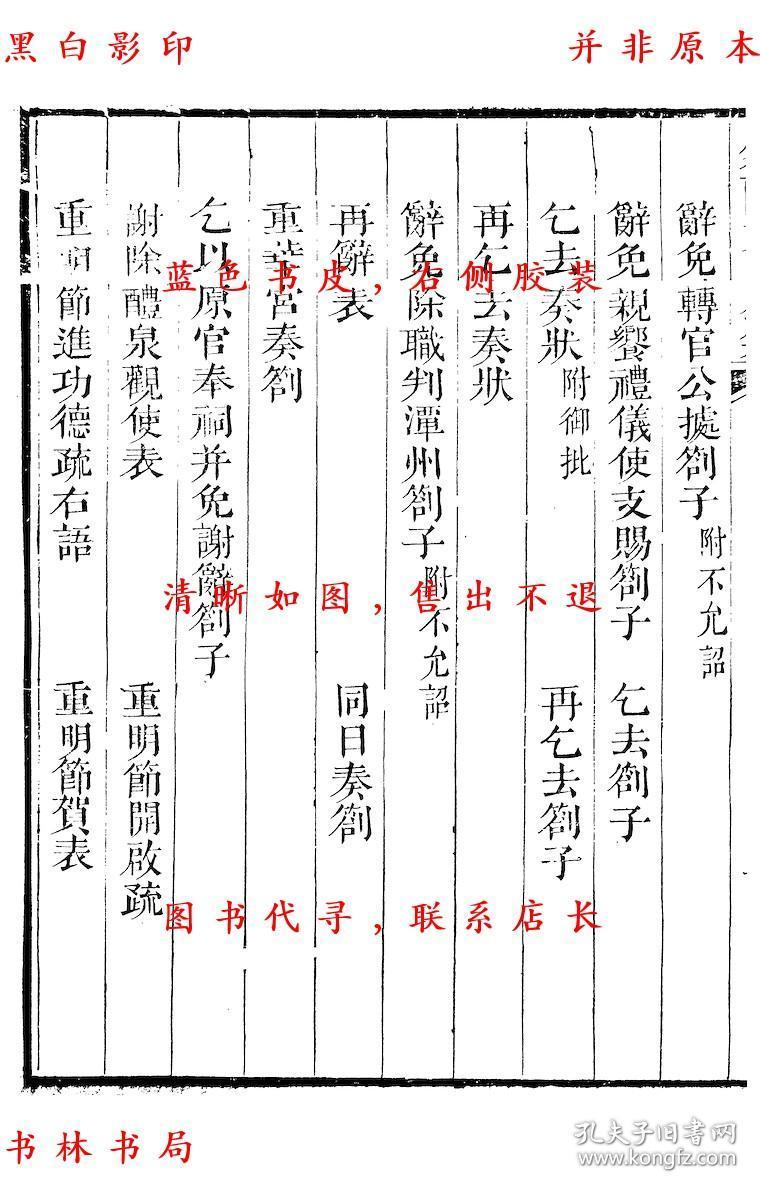 黑白影印
并非原本
辭免轉官公據劄子 附不允詔
辭免親饗禮儀使支賜劄子 乞去劄子
乞去奏狀 附御批 再乞去劄子
再乞去奏狀
辭免除職判潭州劄子 附不允詔
再辭表 同日奏劄
重華宮奏劄
乞以原官奉祠并免謝辭劄子
謝除醴泉觀使表 重明節開啟疏
重明節進功德疏右語 重明節賀表
蓝色书皮,右侧胶装
清晰如图,售出不退
图书代寻,联系店长
书林书局
孔夫子旧书网
www.kongfz.com